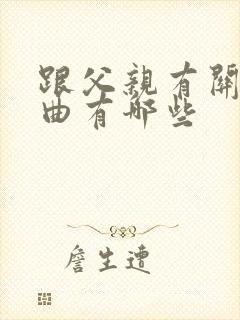 跟父親有關
曲有哪些
詹生遭